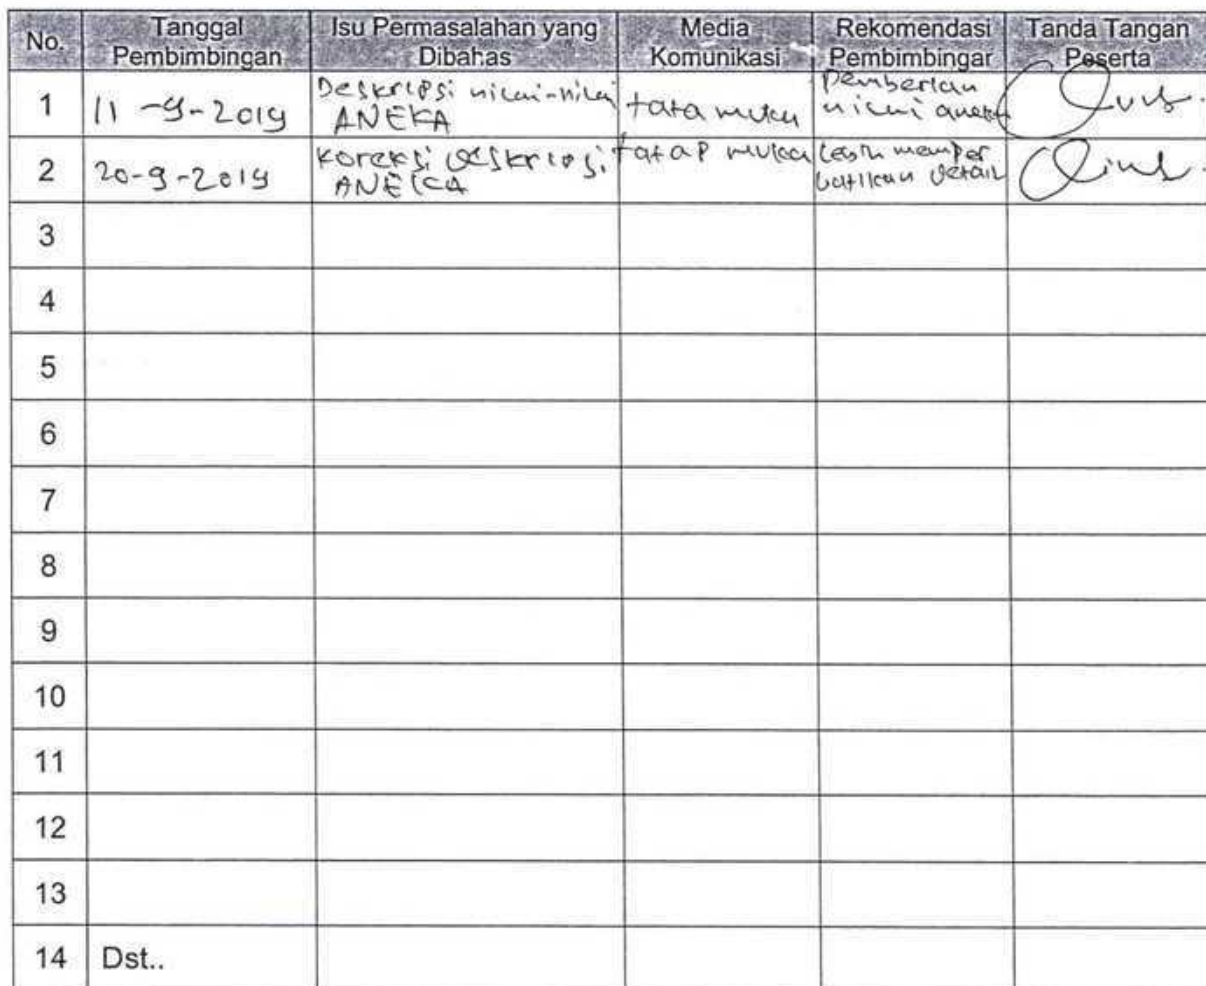 No. Tanggal Pembimbingan Isu Permasalahan yang Dibahas Media Komunikasi Rekomendasi Pembimbingan Tanda Tangan Peserta
1 11-9-2019 Deskripsi nilai-nilai ANEKA tata muka Pemberian nilai aneka
2 20-9-2019 Koreksi deskripsi ANEKA tatap muka Lebih memperhatikan detail
3
4
5
6
7
8
9
10
11
12
13
14 Dst..